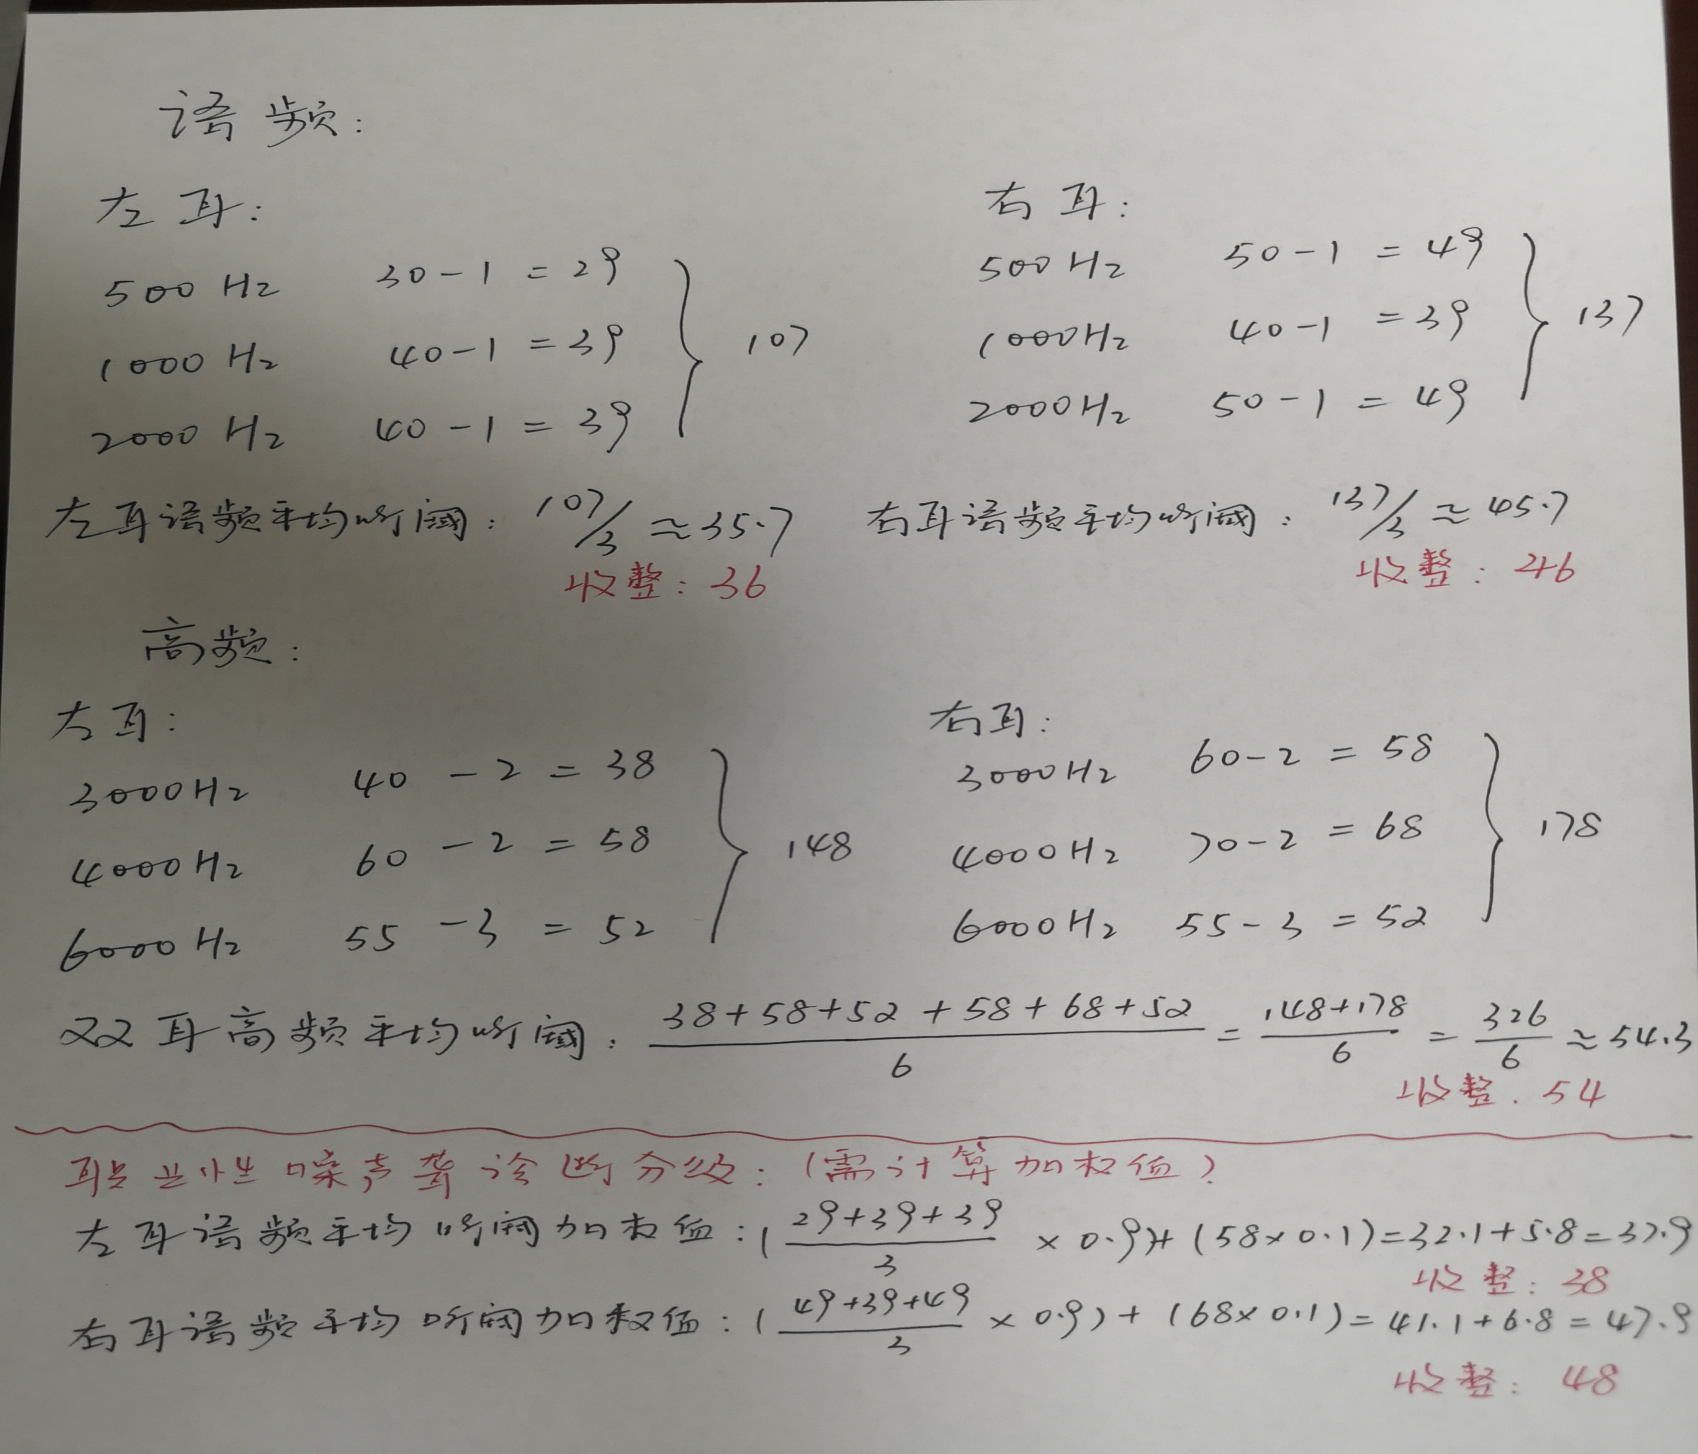 语频:
左耳: 右耳:
500Hz 30-1=29 500Hz 50-1=49
1000Hz 40-1=39 } 107 1000Hz 40-1=39 } 137
2000Hz 40-1=39 2000Hz 50-1=49
左耳语频平均听阈: 107/3≈35.7 右耳语频平均听阈: 137/3≈45.7
收整: 36 收整: 46
高频:
左耳: 右耳:
3000Hz 40-2=38 3000Hz 60-2=58
4000Hz 60-2=58 } 148 4000Hz 70-2=68 } 178
6000Hz 55-3=52 6000Hz 55-3=52
双耳高频平均听阈: (38+58+52+58+68+52)/6 = (148+178)/6 = 326/6 ≈54.3
收整. 54
职业性噪声聋诊断分级: (需计算加权值)
左耳语频平均听阈加权值: ((29+39+39)/3 ×0.9)+(58×0.1)=32.1+5.8=37.9
收整: 38
右耳语频平均听阈加权值: ((49+39+49)/3 ×0.9)+(68×0.1)=41.1+6.8=47.9
收整: 48